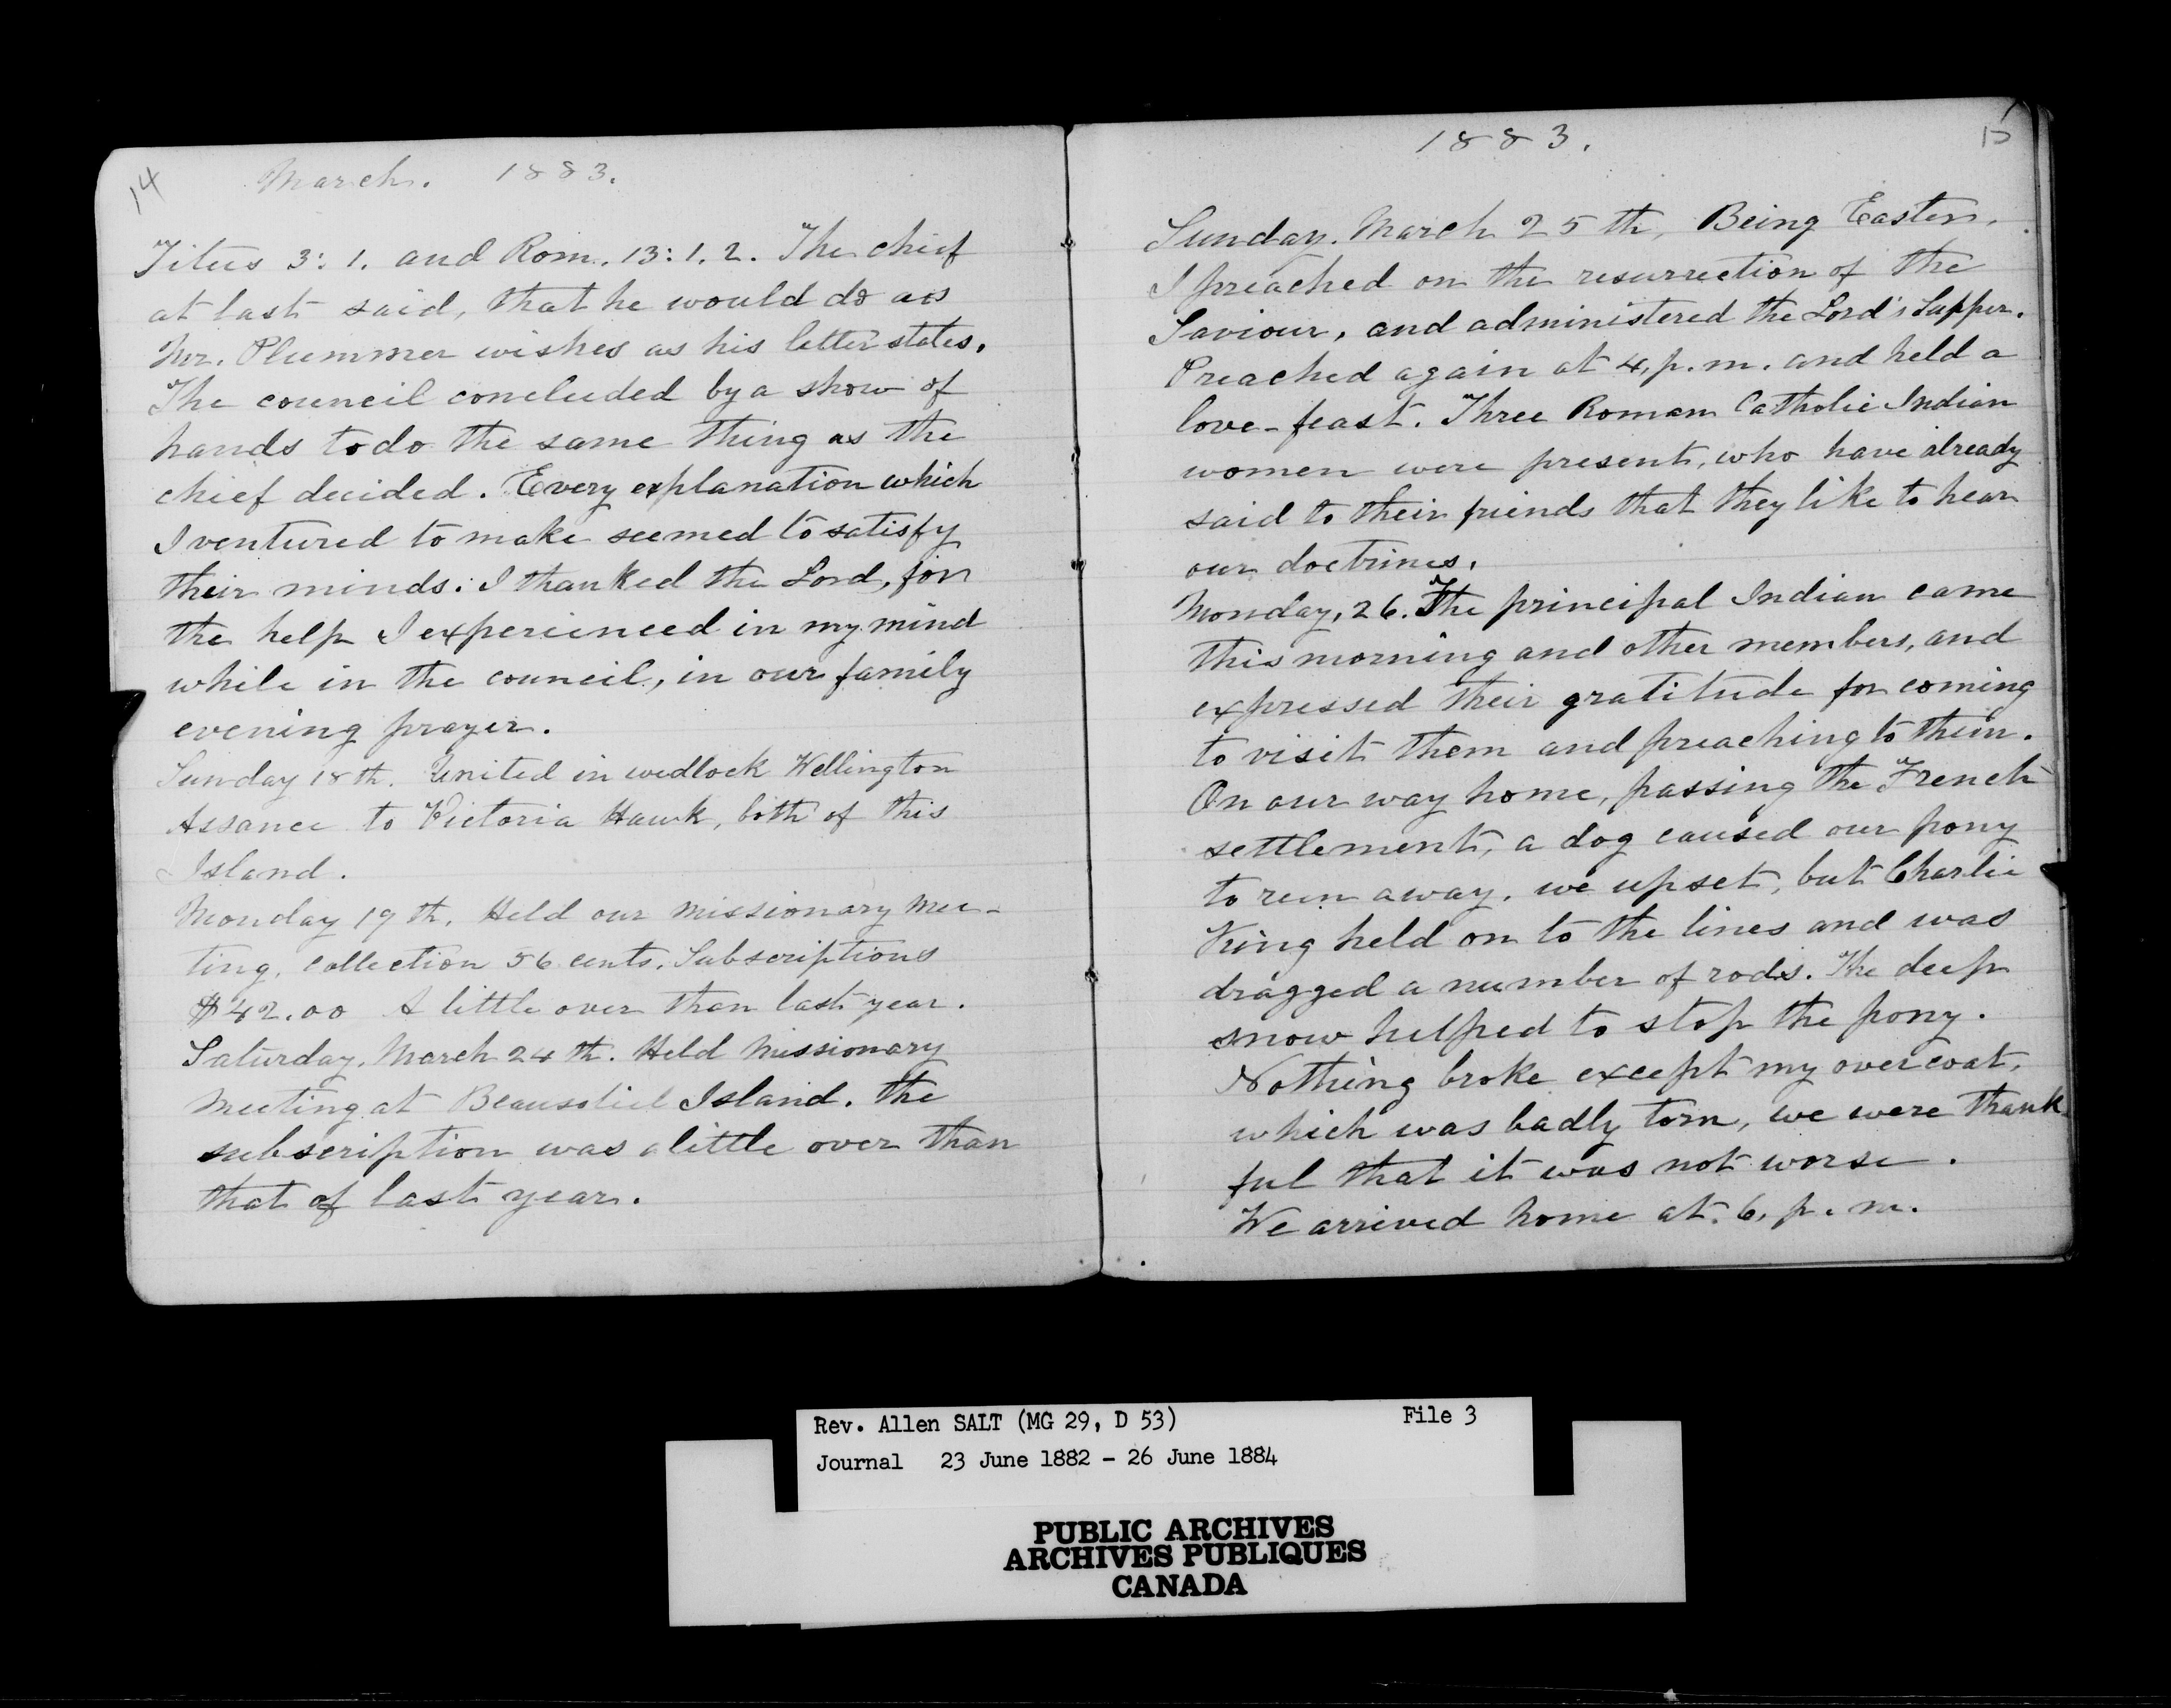 14
March. 1883.
Titus 3: 1. and Rom. 13: 1. 2. The chief
at last said, that he would do as
Mr. Plummer wishes as his letter states.
The council concluded by a show of
hands to do the same thing as the
chief decided. Every explanation which
I ventured to make seemed to satisfy
their minds. I thanked the Lord, for
the help I experienced in my mind
while in the council, in our family
evening prayer.
Sunday 18th. United in wedlock Wellington
Assance to Victoria Hawk, both of this
Island.
Monday 19th. Held our missionary mee-
ting, collection 56 cents. Subscriptions
$42.00 A little over than last year.
Saturday, March 24th. Held Missionary
meeting at Beausoliel Island. the
subscription was a little over than
that of last year.
1883.
15
Sunday. March 25th, Being Easter,
I preached on the resurrection of the
Saviour, and administered the Lord's Supper.
Preached again at 4, p.m. and held a
love-feast. Three Roman Catholic Indian
women were present, who have already
said to their friends that they like to hear
our doctrines.
Monday, 26. The principal Indian came
this morning and other members, and
expressed their gratitude for coming
to visit them and preaching to them.
On our way home, passing the French
settlement, a dog caused our pony
to run away. we upset, but Charlie
King held on to the lines and was
dragged a number of rods. The deep
snow helped to stop the pony.
Nothing broke except my overcoat,
which was badly torn, we were thank
ful that it was not worse.
We arrived home at. 6, p.m.
Rev. Allen SALT (MG 29, D 53) File 3
Journal 23 June 1882 - 26 June 1884
PUBLIC ARCHIVES
ARCHIVES PUBLIQUES
CANADA